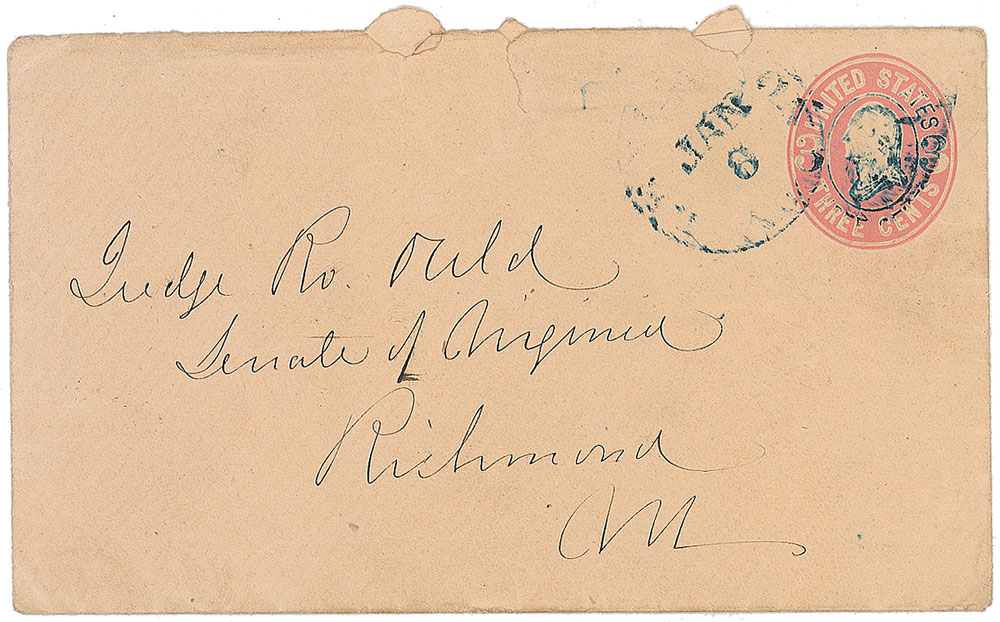 UNITED STATES
3 3
THREE CENTS
JAN
8
Judge Ro. Ould
Senate of Virginia
Richmond
Va